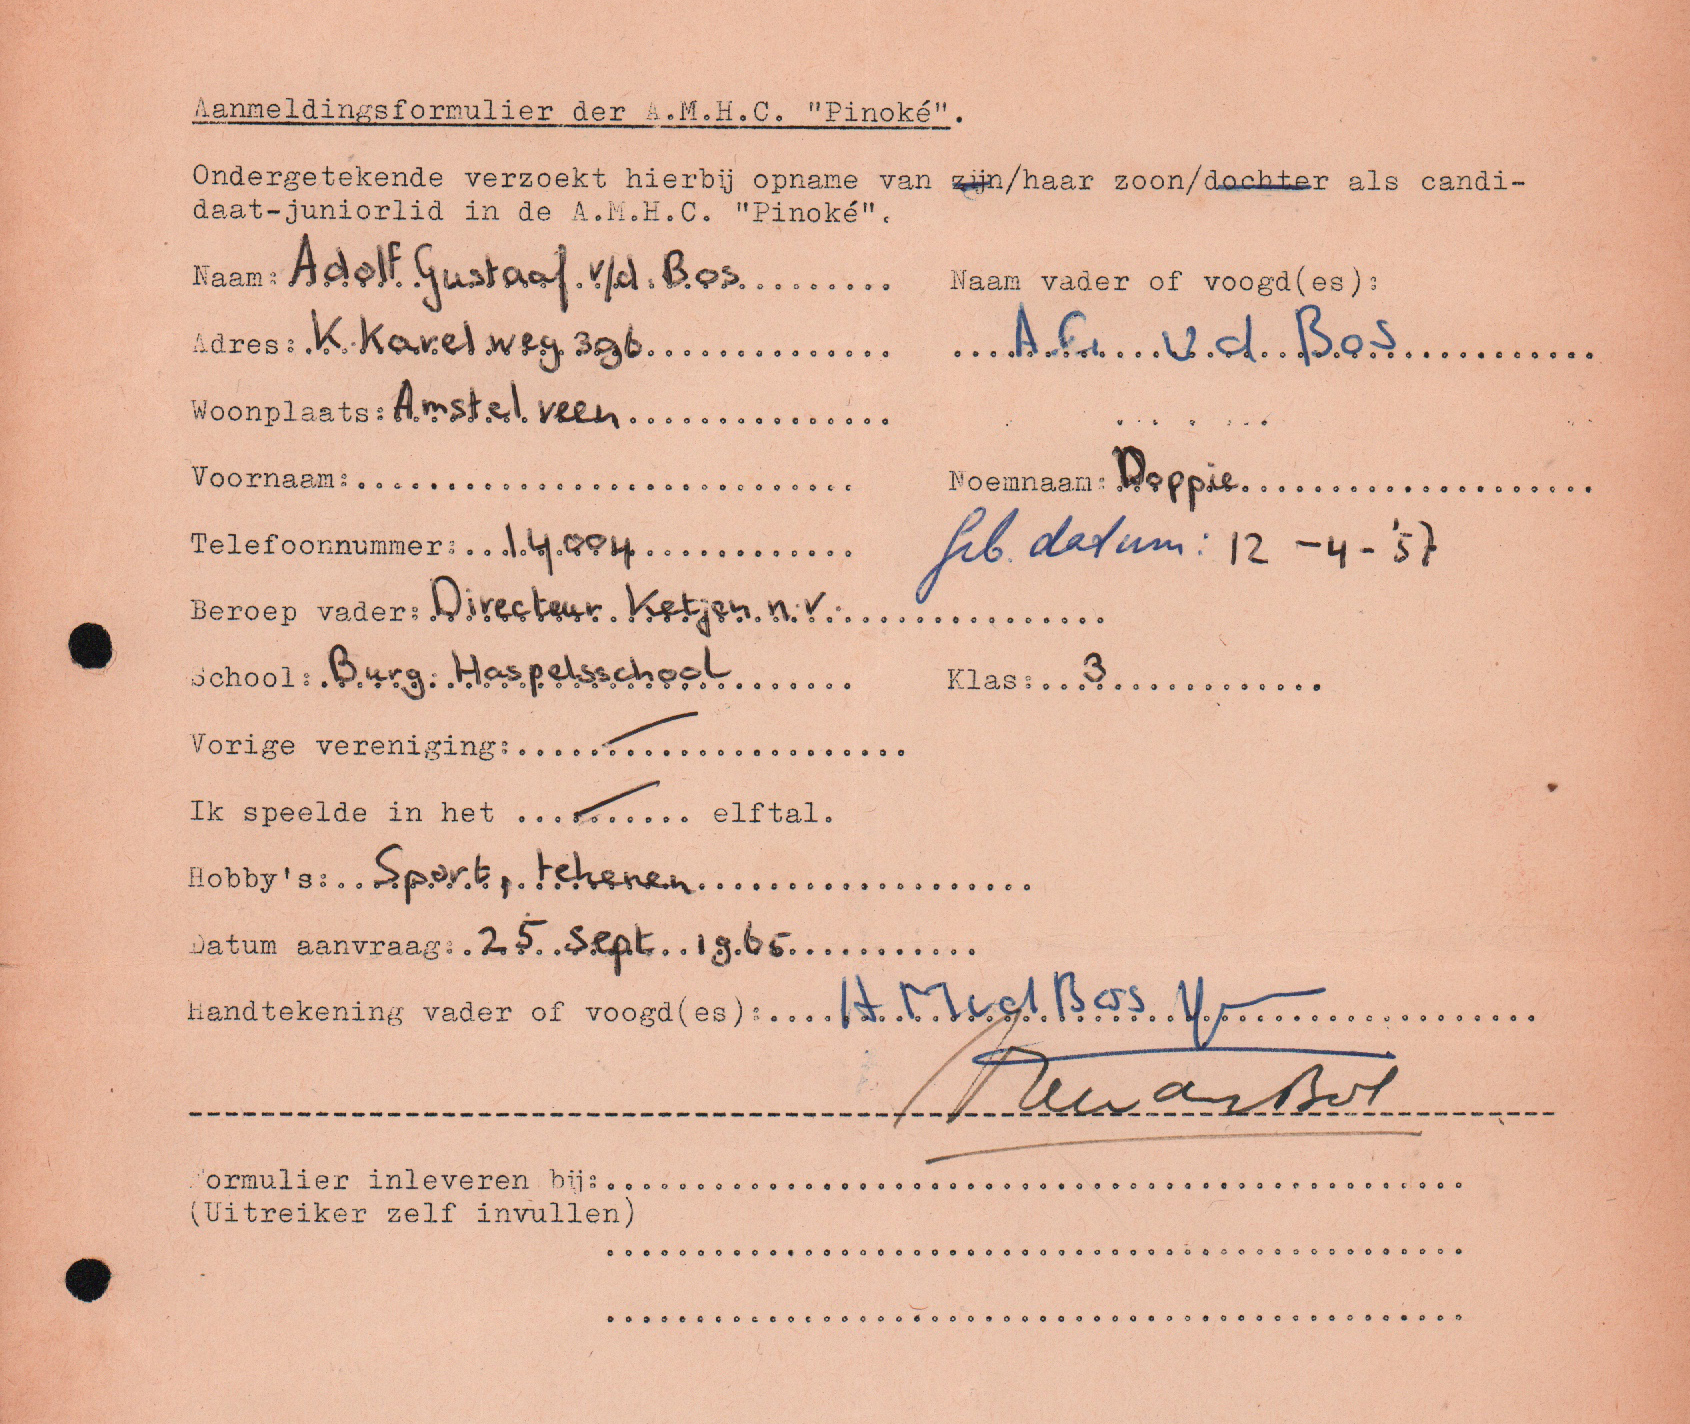 Aanmeldingsformulier der A.M.H.C. "Pinoké".
Ondergetekende verzoekt hierbij opname van zijn/haar zoon/dochter als candi-
daat-juniorlid in de A.M.H.C. "Pinoké".
Naam: Adolf Gustaaf v/d Bos Naam vader of voogd(es):
Adres: K. Karelweg 396 A.G. v.d. Bos
Woonplaats: Amstelveen
Voornaam: Noemnaam: Doppie
Telefoonnummer: 14004 Geb. datum: 12-4-'57
Beroep vader: Directeur Ketjen n.v.
School: Burg. Haspelsschool Klas: 3
Vorige vereniging:
Ik speelde in het elftal.
Hobby's: Sport, tekenen
Datum aanvraag: 25 sept. 1965
Handtekening vader of voogd(es):
Formulier inleveren bij:
(Uitreiker zelf invullen)